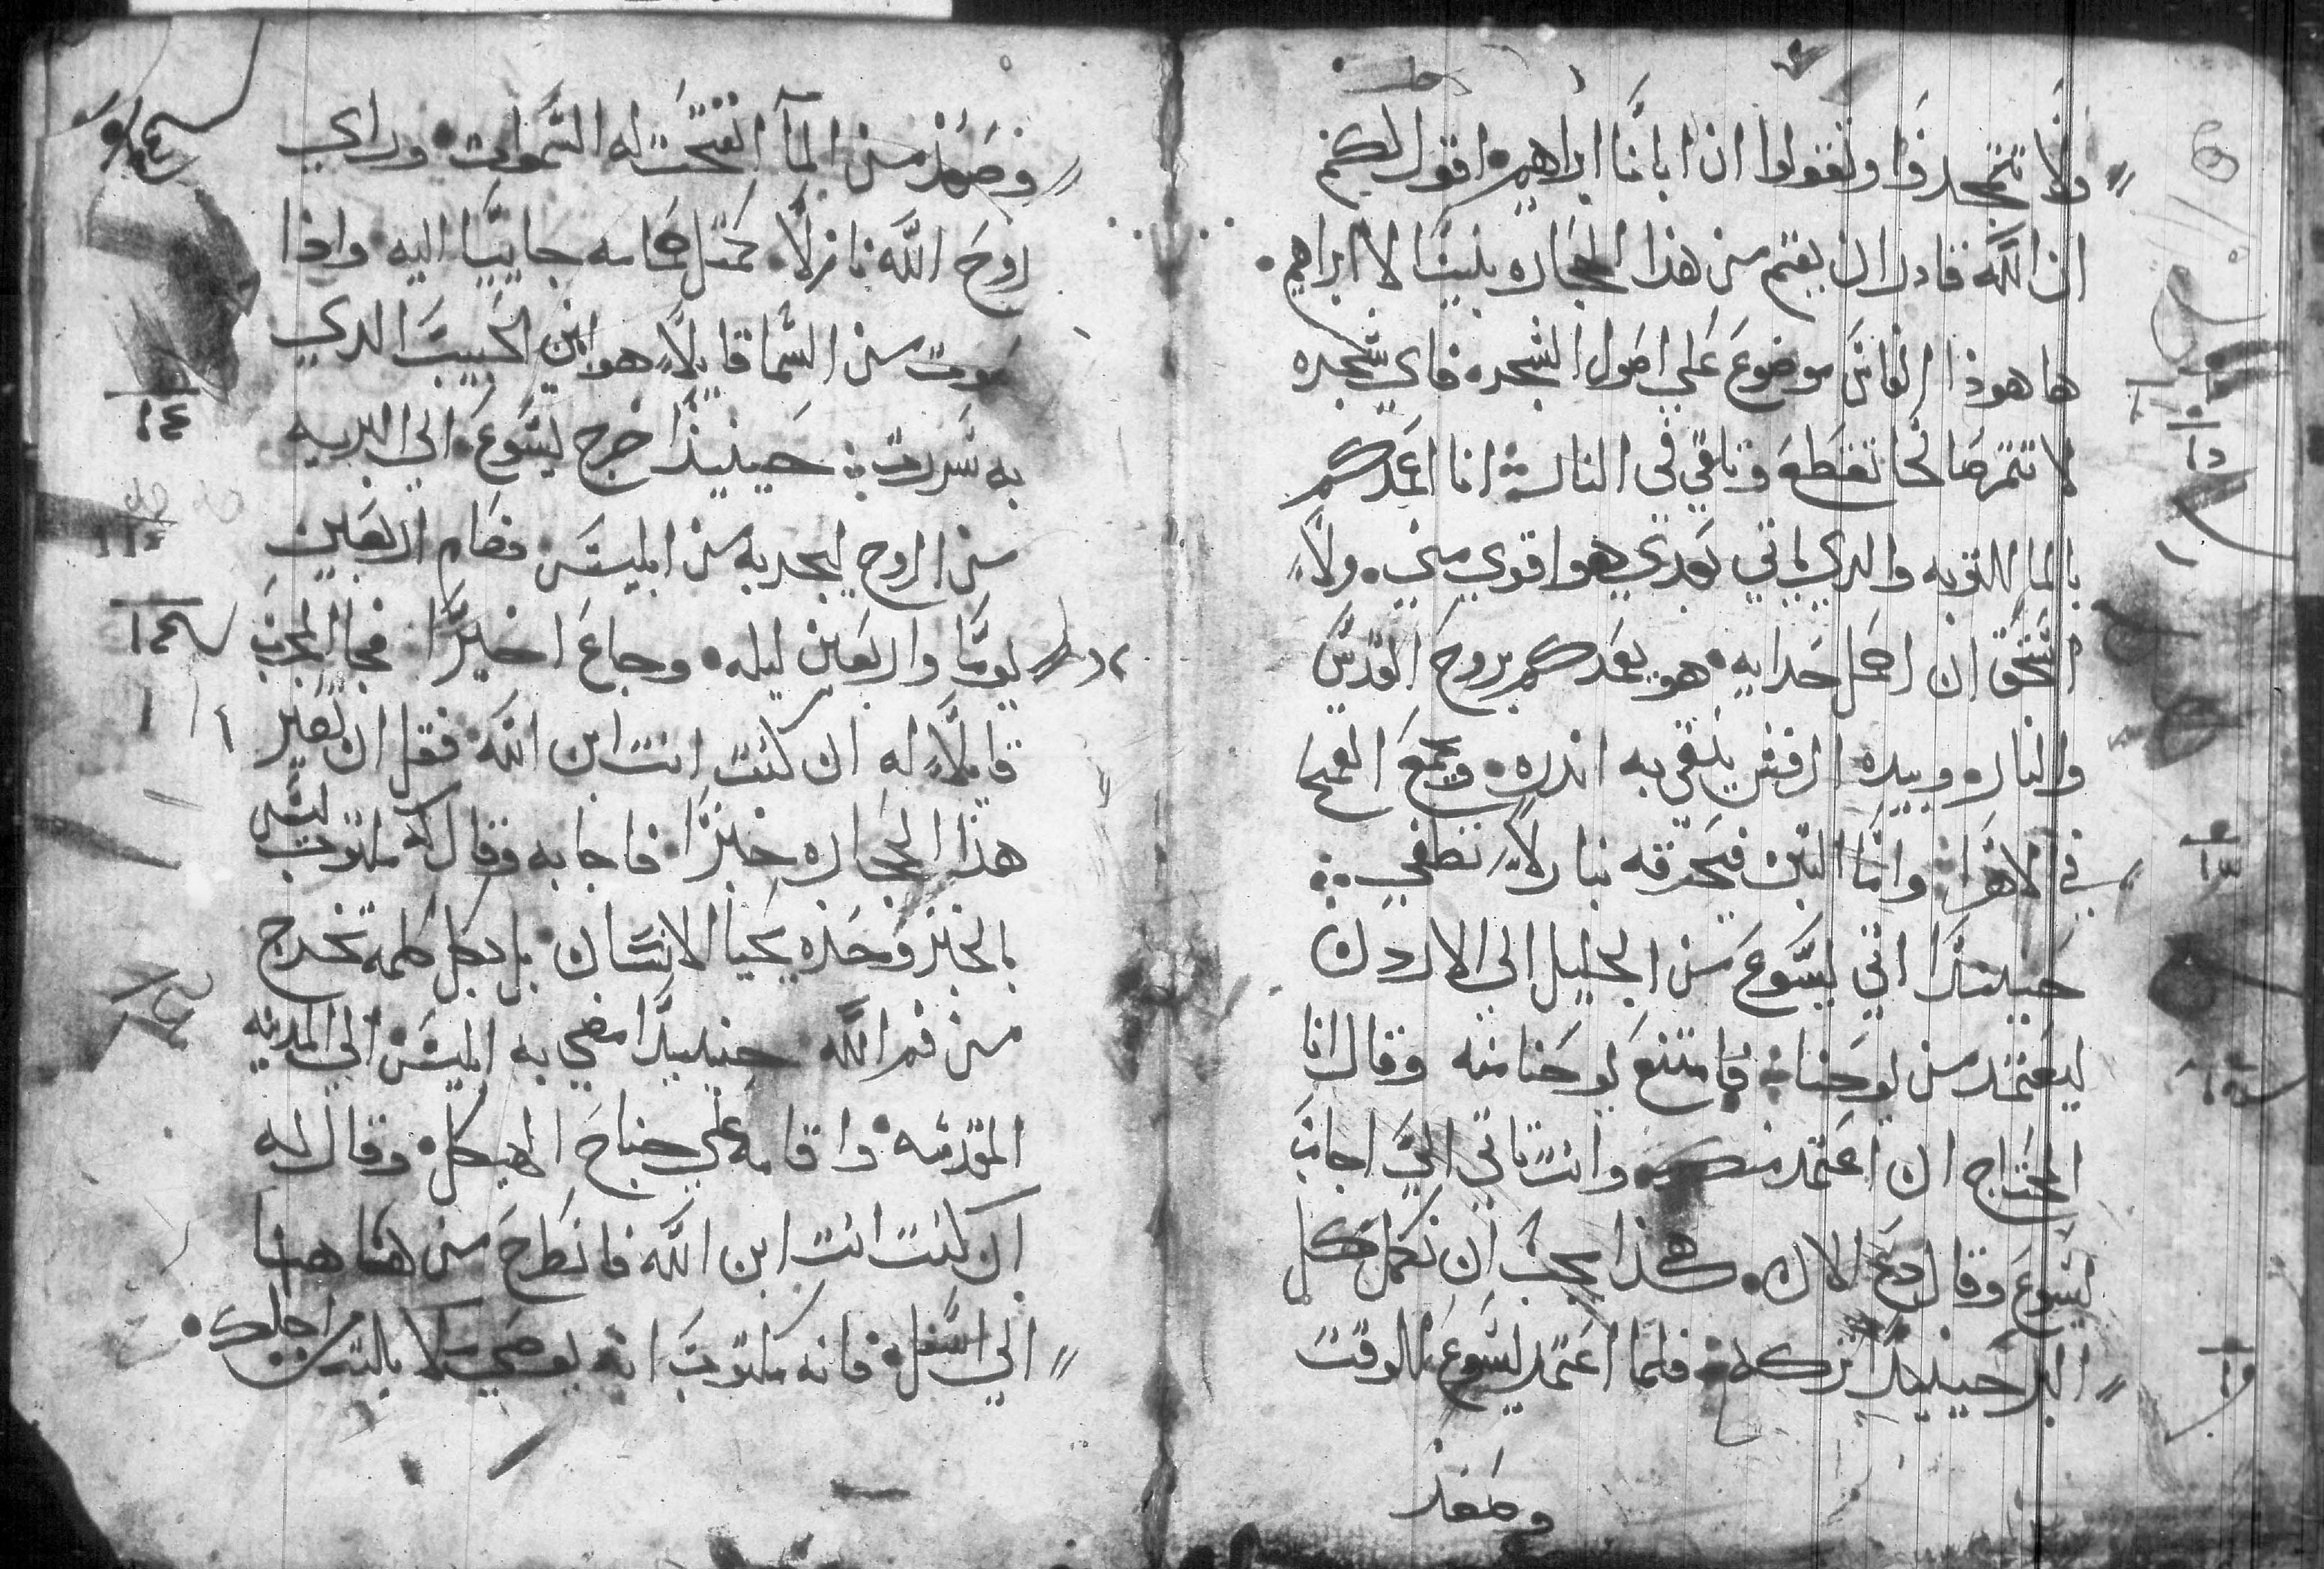 ولا تتمجدوا وتقولوا ان ابانا ابراهيم اقول لكم
ان الله قادر ان يقيم من هذا الحجاره بنينًا لابراهيم
ها هوذا الفاس موضوع علي اصول الشجره فاي شجره
لا تثمر صالحا تقطع وتلقي في النار انا اعمدكم
بالما للتوبه والدي ياتي بعدي هو اقوي مني ولا
استحق ان احمل حدايه هو يعمدكم بروح القدس
والنار وبيده الرفش ينقي به اندره ويجمع القمح
في الاهرا واما التبن فيحرقه بنار لا تطفي
حينيدًا اتي يسوع من الجليل الي الاردن
ليعتمد من يوحنا فامتنع يوحنا منه وقال انا
المحتاج ان اعتمد منك وانت تاتي الي اجاب
يسوع وقال دع الان هكذا يجب ان نكمل كل
البر حينيدًا تركه فلما اعتمد يسوع للوقت
وصعد
وصعد من المآ انفتحت له السموات وراي
روح الله نازلًا كمثل حمامه جاييًا اليه واذا
صوت من السما قايلًا هو ابني الحبيب الدي
به سررت حينيذًا خرج يسوع الي البريه
من الروح ليجربه من ابليس فصام اربعين
يومًا واربعين ليله وجاع اخيرًا فجا المجرب
قايلًا له ان كنت انت ابن الله فقل ان تصير
هذا الحجاره خبزًا فاجابه وقال له مكتوب ليس
بالخبز وحده يحيا الانسان بل بكل كلمه تخرج
من فم الله حينيدًا مضي به ابليس الي المدينه
المقدسه واقامه علي جناح الهيكل وقال له
ان كنت انت ابن الله فانطرح من هاهنا
الي اسفل فانه مكتوب انه يوصي ملايكته من اجلك